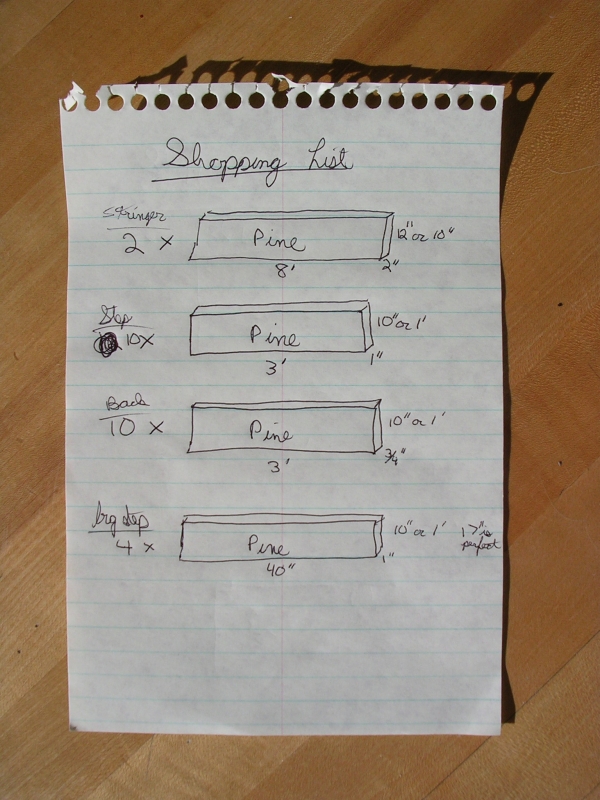 Shopping List
Stringer
2 x Pine 12" or 10"
8' 2"
Step
10x Pine 10" or 1'
3' 1"
Back
10 x Pine 10" or 1'
3' 3/4"
brg step
4 x Pine 10" or 1'
40" 1"
is
perfect